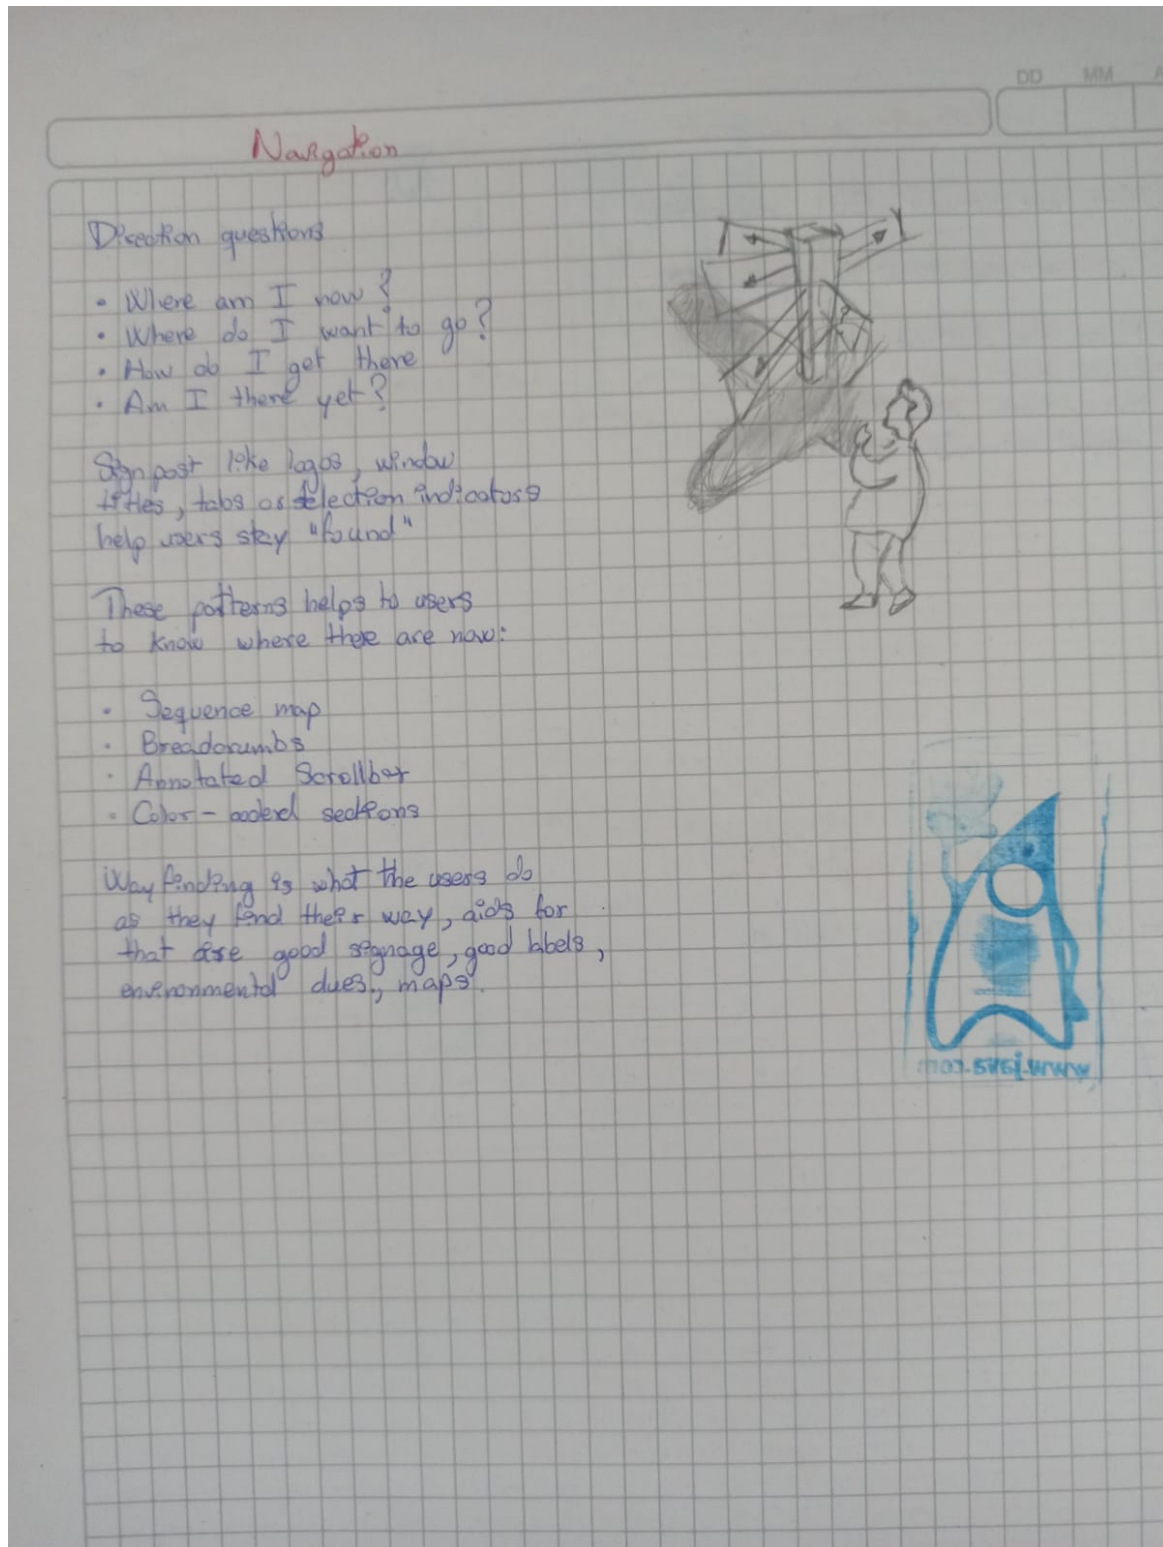 DD MM A
Navigation
Direction questions
• Where am I now?
• Where do I want to go?
• How do I get there
• Am I there yet?
Sign post like logos, window
titles, tabs or selection indicators
help users stay "found"
These patterns helps to users
to know where there are now:
• Sequence map
• Breadcrumbs
• Annotated Scrollbar
• Color-coderd sections
Way finding is what the users do
as they find their way, aids for
that are good signage, good labels,
environmental clues, maps.
www.java.com